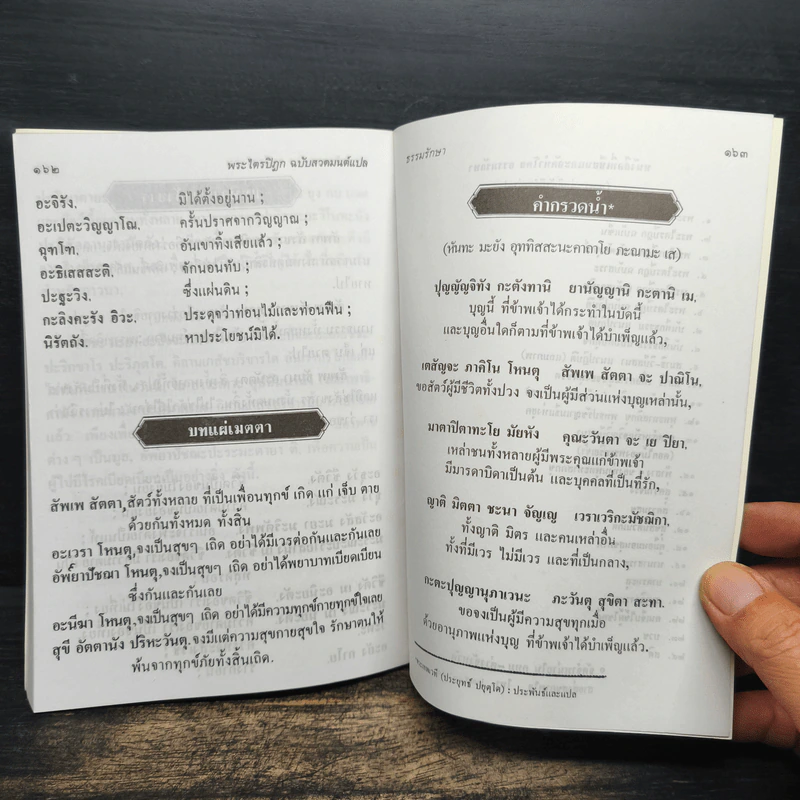 ๑๖๒
พระไตรปิฎก ฉบับสวดมนต์แปล
อะจิรัง, มิได้ตั้งอยู่นาน ;
อะเปตะวิญญาโณ, ครั้นปราศจากวิญญาณ ;
ฉุฑโฑ, อันเขาทิ้งเสียแล้ว ;
อะธิเสสสะติ, จักนอนทับ ;
ปะฐะวิง, ซึ่งแผ่นดิน ;
กะลิงคะรัง อิวะ, ประดุจว่าท่อนไม้และท่อนฟืน ;
นิรัตถัง, หาประโยชน์มิได้.
บทแผ่เมตตา
สัพเพ สัตตา,สัตว์ทั้งหลาย ที่เป็นเพื่อนทุกข์ เกิด แก่ เจ็บ ตาย
ด้วยกันทั้งหมด ทั้งสิ้น
อะเวรา โหนตุ,จงเป็นสุขๆ เถิด อย่าได้มีเวรต่อกันและกันเลย
อัพ๎ยาปัชฌา โหนตุ,จงเป็นสุขๆ เถิด อย่าได้พยาบาทเบียดเบียน
ซึ่งกันและกันเลย
อะนีฆา โหนตุ,จงเป็นสุขๆ เถิด อย่าได้มีความทุกข์กายทุกข์ใจเลย
สุขี อัตตานัง ปริหะวันตุ,จงมีแต่ความสุขกายสุขใจ รักษาตนให้
พ้นจากทุกข์ภัยทั้งสิ้นเถิด.
ธรรมรักษา
๑๖๓
คำกรวดน้ำ*
(หันทะ มะยัง อุททิสสะนะคาถาโย ภะณามะ เส)
ปุญญัญจิทัง กะตังทานิ ยานัญญานิ กะตานิ เม,
บุญนี้ ที่ข้าพเจ้าได้กระทำในบัดนี้
และบุญอื่นใดก็ตามที่ข้าพเจ้าได้บำเพ็ญแล้ว,
เตสัญจะ ภาคิโน โหนตุ สัพเพ สัตตา จะ ปาณิโน,
ขอสัตว์ผู้มีชีวิตทั้งปวง จงเป็นผู้มีส่วนแห่งบุญเหล่านั้น,
มาตาปิตาทะโย มัยหัง คุณะวันตา จะ เย ปิยา,
เหล่าชนทั้งหลายผู้มีพระคุณแก่ข้าพเจ้า
มีมารดาบิดาเป็นต้น และบุคคลที่เป็นที่รัก,
ญาติ มิตตา ชะนา จัญเญ เวราเวริกะมัชฌิกา,
ทั้งญาติ มิตร และคนเหล่าอื่น
ทั้งที่มีเวร ไม่มีเวร และที่เป็นกลาง,
กะตะปุญญานุภาเวนะ ภะวันตุ สุขิตา สะทา.
ขอจงเป็นผู้มีความสุขทุกเมื่อ
ด้วยอานุภาพแห่งบุญ ที่ข้าพเจ้าได้บำเพ็ญแล้ว.
(ประยุทธ์ ปยุตฺโต) : ประพันธ์และแปล